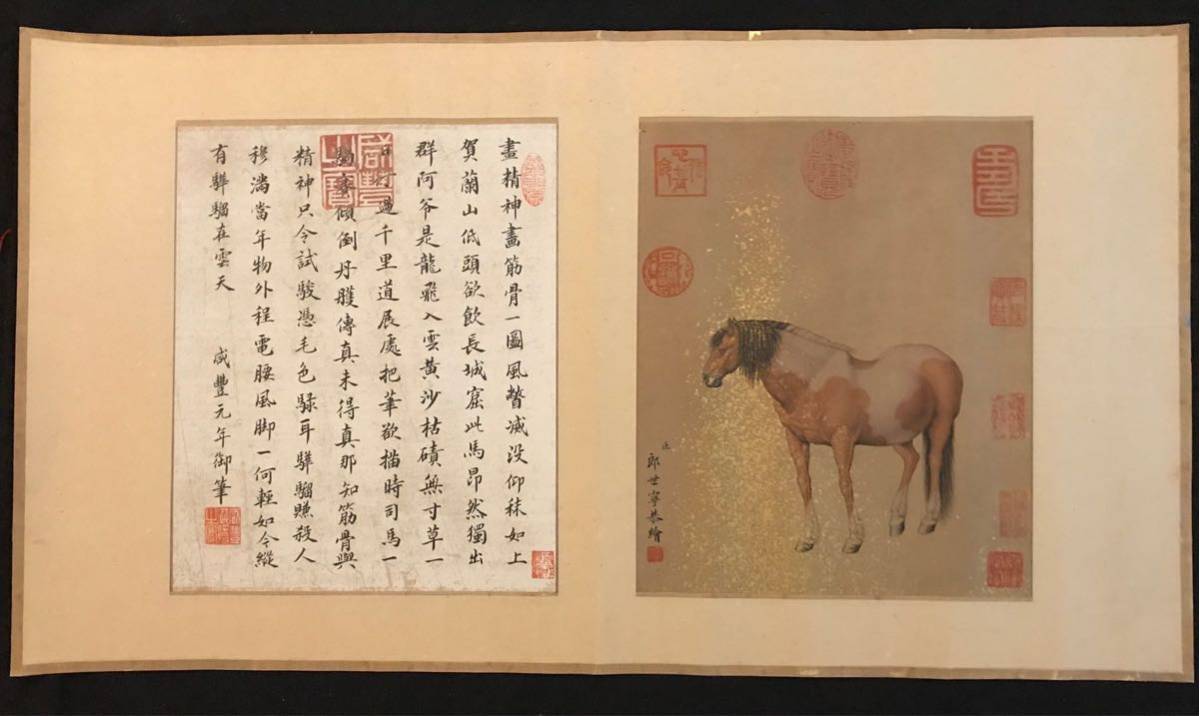 臣郎世寧恭繪
畫精神畫筋骨一圖風瞥滅没仰秣如上
賀蘭山低頭欲飲長城窟此馬昂然獨出
群阿爷是龍飛入雲黄沙枯磧無寸草一
日行過千里道展處把筆欲描時司馬一
傾倒丹雘傳真未得真那知筋骨與
精神只令試駿憑毛色騄耳驊騮賺殺人
穆滿當年物外程電腰風脚一何輕如今縱
有驊騮在雲天 咸豐元年御筆
咸豐之寶